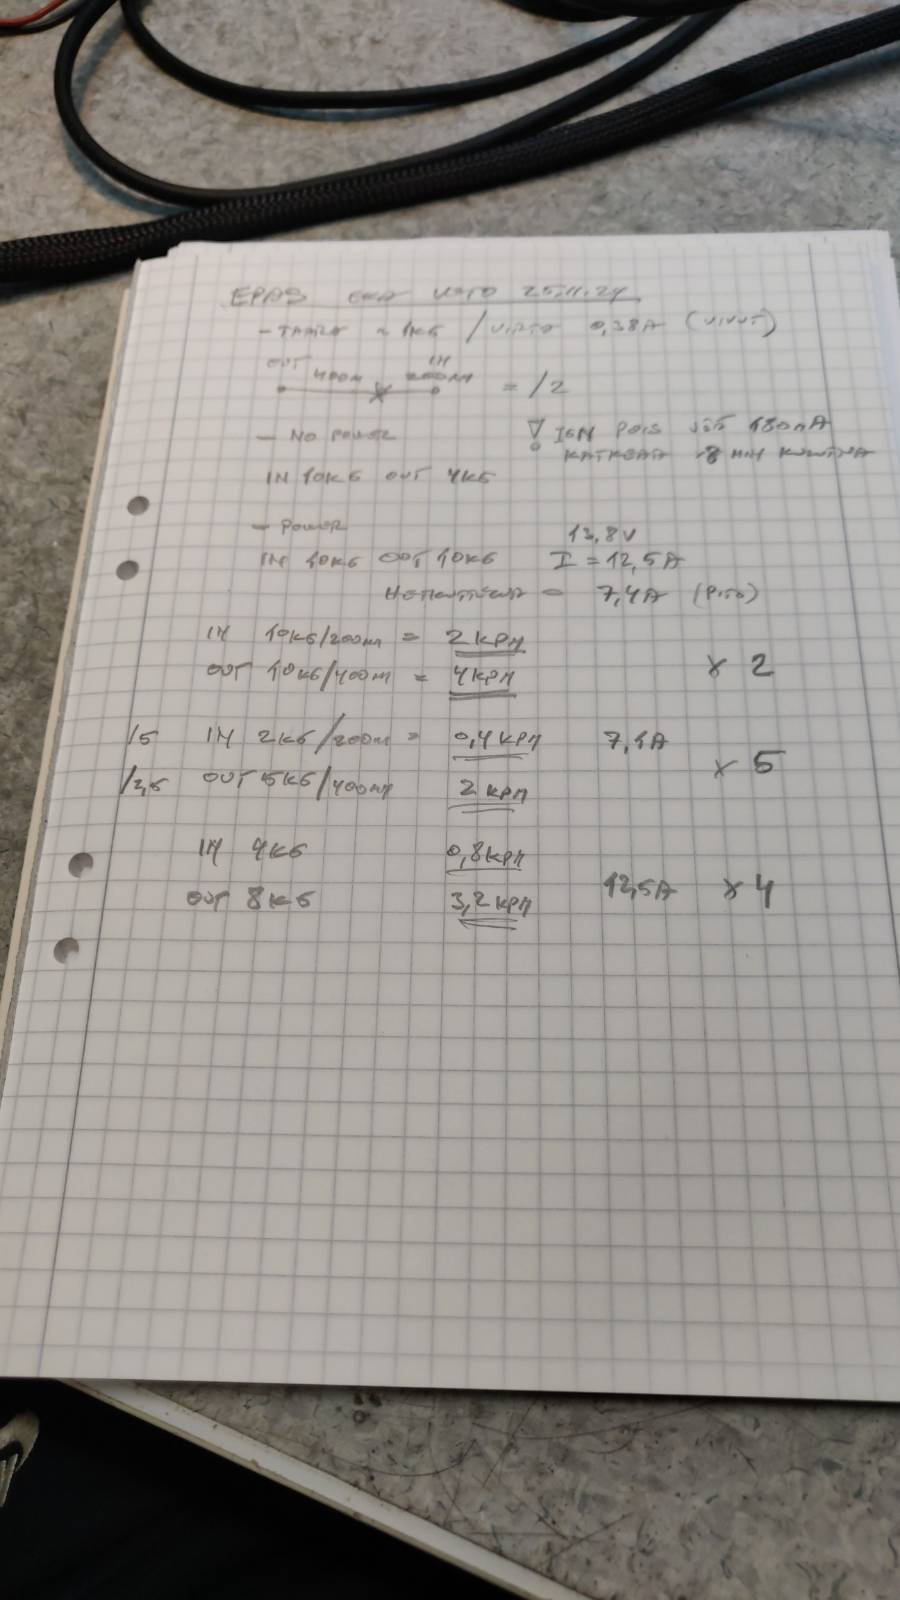 EPAS EKA VETO 25.11.24
- TAARA ~ 1KG / VIRTA 0,38A (VIIVUT)
OUT 400M IN 200MM = /2
- NO POWER
! IGN POIS JÄÄ 180mA
KATKEAA ~8 MIN KULUTTUA
IN 10KG OUT 4KG
- POWER
13,8V
IN 10KG OUT 10KG I = 12,5A
= 7,4A (PITO)
IN 10KG/200MM = 2KPM
OUT 10KG/400MM = 4KPM
x 2
/5 IN 2KG/200MM = 0,4KPM 7,4A
/2,5 OUT 5KG/400MM 2KPM
x 5
IN 4KG 0,8KPM
OUT 8KG 3,2KPM 12,5A x 4